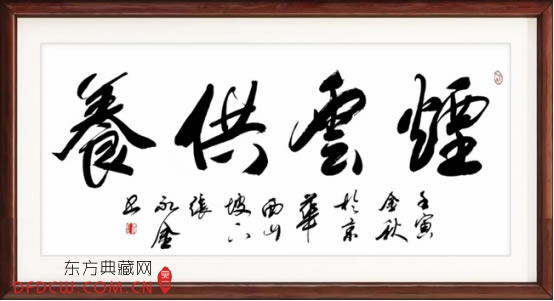 煙雲供養
壬寅
金秋
於京
華
西山
坡下
張
永金
书
东方典藏网
DFDCW.COM.CN